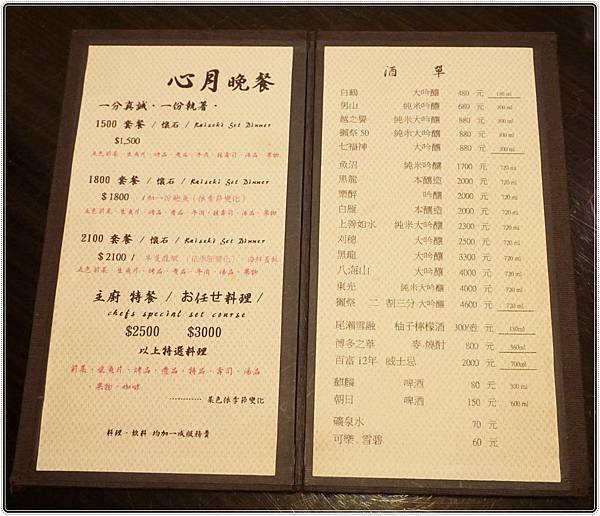 心月晚餐
一分真誠．一份執著．
1500 套餐 / 懷石 / Kaiseki Set Dinner
$1,500
五色前菜、生魚片、烤品、煮品、牛肉、握壽司、湯品、果物
1800 套餐 / 懷石 / Kaiseki Set Dinner
$1800 /加一份鮑魚(依季節變化)
五色前菜、生魚片、烤品、煮品、牛肉、握壽司、湯品、果物
2100 套餐 / 懷石 / Kaiseki Set Dinner
$2100 / 半隻龍蝦 (依季節變化)、海鮮蓋飯
五色前菜、生魚片、烤品、煮品、牛肉、湯品、果物
主廚 特餐 / お任せ料理 /
chefs special set course
$2500 $3000
以上特選料理
前菜、生魚片、烤品、煮品、特品、壽司、湯品
果物、咖啡
............菜色依季節變化
料理．飲料 均加一成服務費
酒 單
白鶴 大吟釀 480 元 180 ml
男山 純米吟釀 680 元 300 ml
越之譽 純米大吟釀 880 元 300 ml
獺祭 50 純米大吟釀 880 元 300 ml
七福神 大吟釀 880 元 300 ml
魚沼 純米吟釀 1700 元 720 ml
黑龍 本釀造 2000 元 720 ml
樂醉 吟釀 2000 元 720 ml
白雁 本釀造 2000 元 720 ml
上善如水 純米大吟釀 2300 元 720 ml
刈穗 大吟釀 2500 元 720 ml
黑龍 大吟釀 3300 元 720 ml
八海山 大吟釀 4000 元 720 ml
東光 純米大吟釀 4000 元 720 ml
獺祭 二 割三分 大吟釀 4600 元 720 ml
尾瀨雪融 柚子檸檬酒 300/壺 元 180ml
博多之華 麥．燒酎 800 元 360ml
百富 12年 威士忌 2000 元 700ml
麒麟 啤酒 80 元 300 ml
朝日 啤酒 150 元 600 ml
礦泉水 70 元
可樂．雪碧 60 元